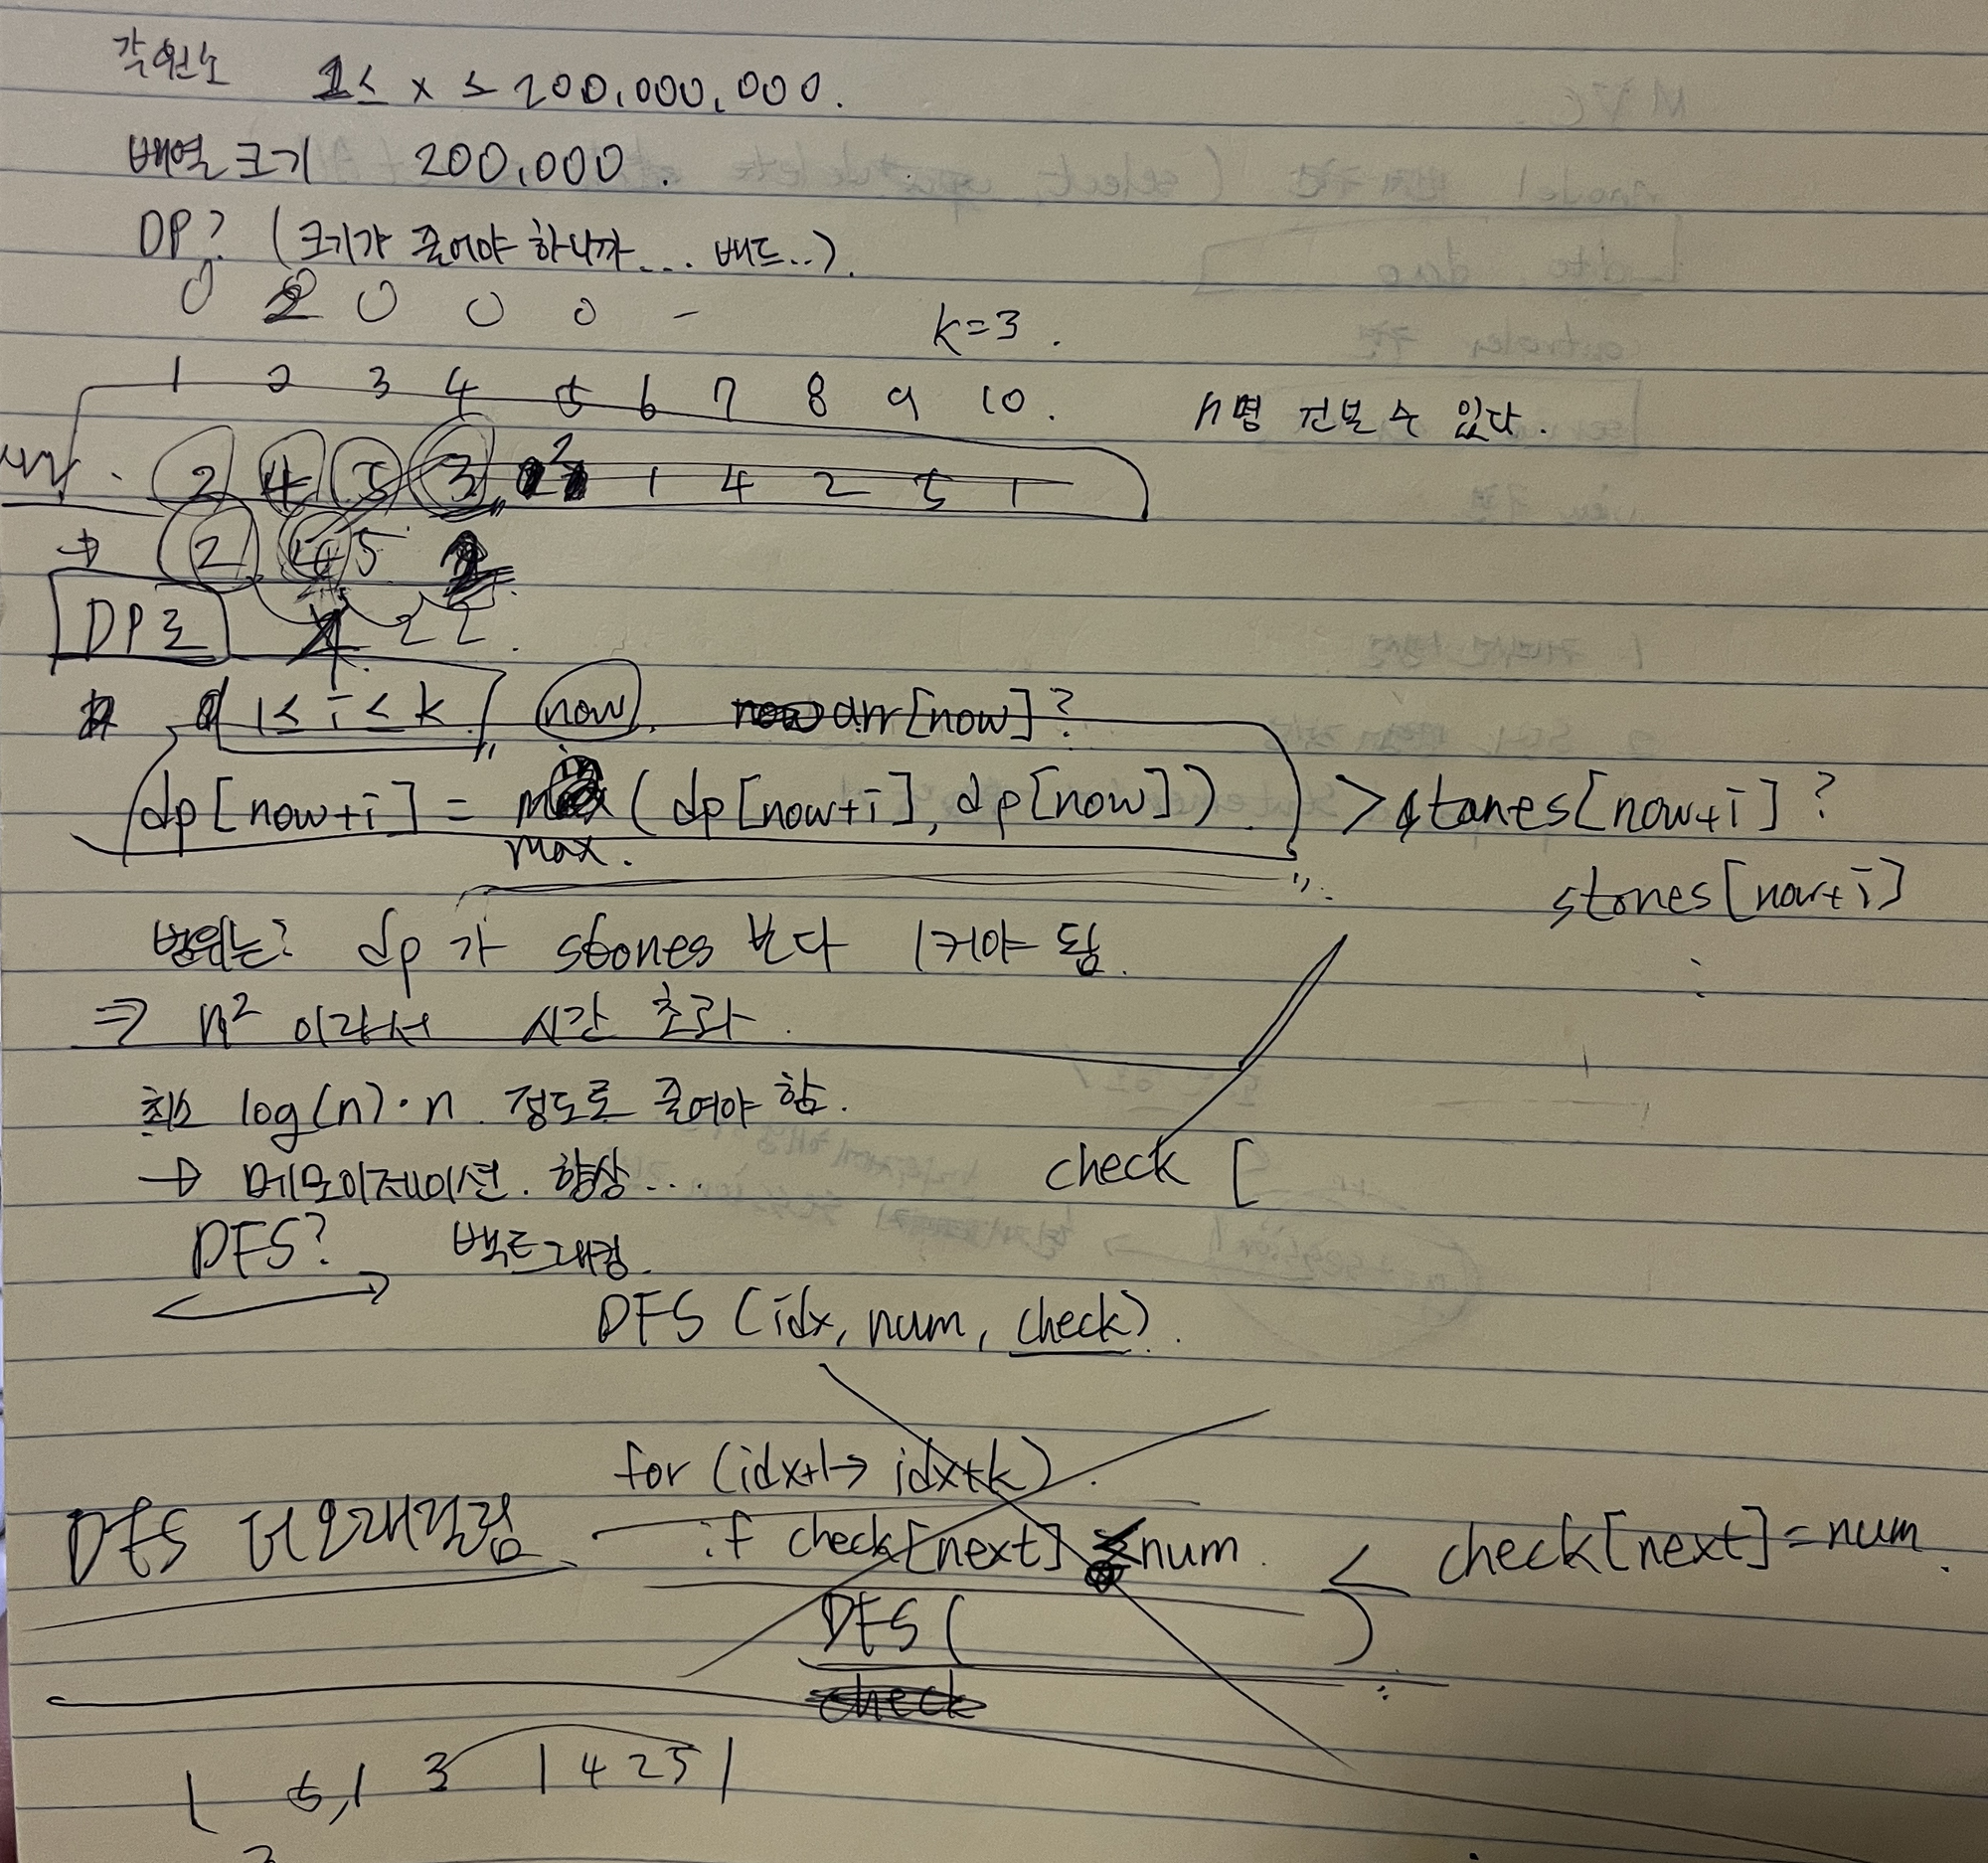 각 원소 1≤ x ≤ 200,000,000.
배열 크기 200,000.
DP? (크기가 줄어야 하니까.... 배드..).
0 2 0 0 0 -
k=3.
1 2 3 4 5 6 7 8 9 10. n명 건널 수 있다.
2 4 5 3 2 1 4 2 5 1
→ 2 4 5 2
DP로 2 2.
1≤ i ≤ k now. arr[now]?
dp[now+i] = max (dp[now+i], dp[now]) > stones[now+i]?
max.
stones[now+i]
범위는? dp가 stones 보다 1 커야 됨.
⇒ n² 이라서 시간 초과.
최소 log(n)·n 정도로 줄여야 함.
→ 메모이제이션. 향상...
check [
DFS? 백트래킹.
DFS (idx, num, check).
for (idx+1→ idx+k).
DFS 더 오래걸림
if check[next] < num. < check[next]=num.
DFS ( )
check
1 5,1 3 1 4 2 5 1